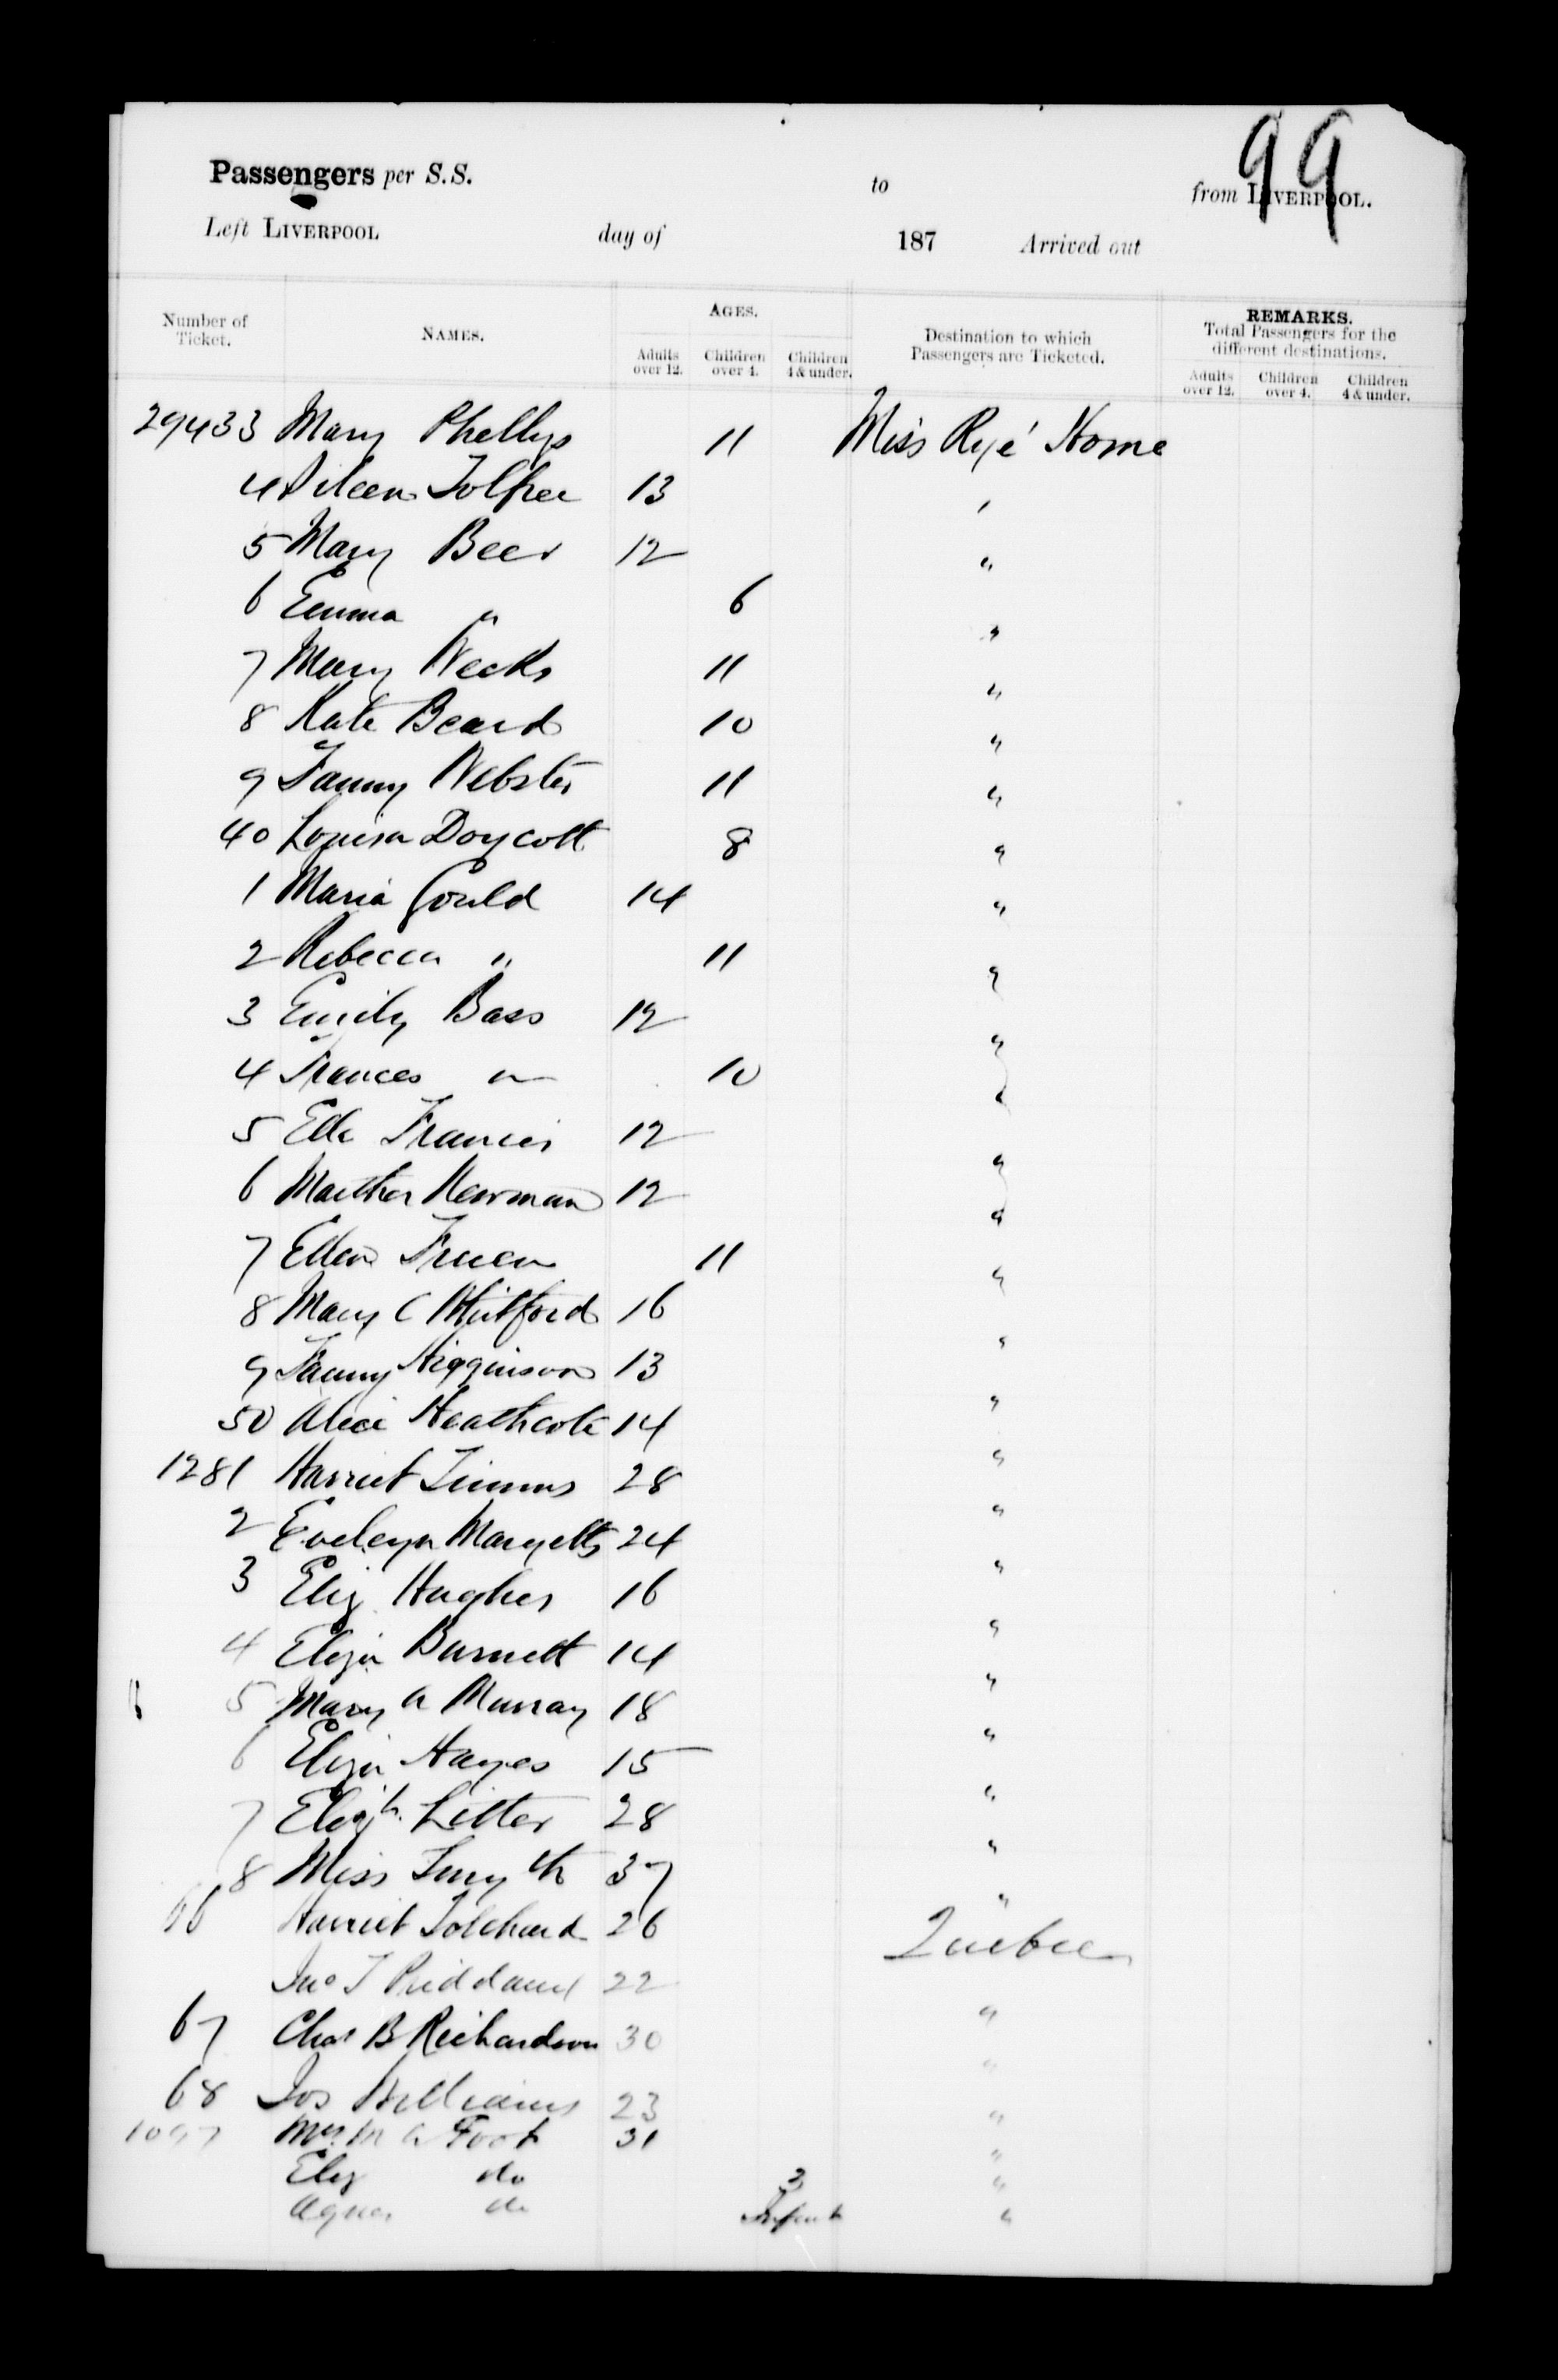 99
Passengers per S.S. to from LIVERPOOL.
Left LIVERPOOL day of 187 Arrived out
Number of Ticket. NAMES. AGES. Destination to which Passengers are Ticketed. REMARKS. Total Passengers for the different destinations.
Adults over 12. Children over 4. Children 4 & under. Adults over 12. Children over 4. Children 4 & under.
29433 Mary Phellps 11 Miss Rye' Home
4 13 "
5 Mary Beer 12 "
6 Emma " 6 "
7 Mary Weeks 11 "
8 Kate Beard 10 "
9 Fanny Webster 11 "
40 Louisa Doycott 8 "
1 Maria Gould 14 "
2 Rebecca " 11 "
3 Emily Bass 12 "
4 Frances " 10 "
5 Francis 12 "
6 Martha Newman 12 "
7 Ellen Fruen 11 "
8 Mary C Whitford 16 "
9 Fanny Higginson 13 "
50 Alice Heathcote 14 "
1281 Harriet Timms 28 "
2 Evelyn Margetts 24 "
3 Eliz Hughes 16 "
4 Eliza Burnett 14 "
5 Mary A Murray 18 "
6 Eliza Hayes 15 "
7 Elizth Litter 28 "
8 Miss Smyth 37 "
66 Harriet Tolchard 26 Quebec
Jno T 22 "
67 Chas B Richardson 30 "
68 Jos Williams 23 "
1097 Mrs M A Foot 31 "
Eliz do 3 "
Agnes do Infant "